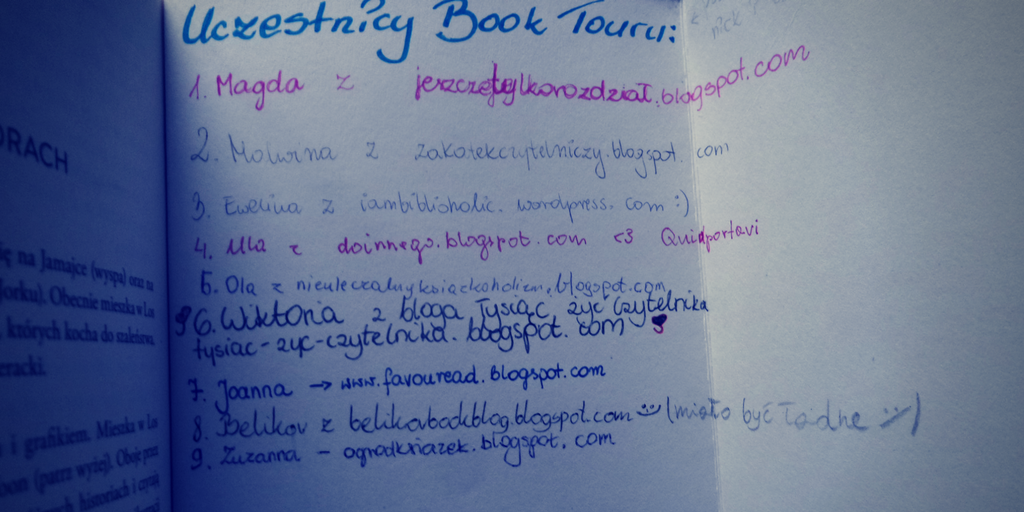 Uczestnicy Book Touru:
1. Magda z jeszczetylkorozdział.blogspot.com
2. Malwina z zakatekczytelniczy.blogspot.com
3. Ewelina z iambiblioholic.wordpress.com :)
4. Ula z doinnego.blogspot.com <3 Quidportavi
5. Ola z nieuleczalnyksiazkoholizm.blogspot.com
6. Wiktoria z bloga Tysiąc żyć czytelnika
tysiac-zyc-czytelnika.blogspot.com
7. Joanna → www.favouread.blogspot.com
8. Belikov z belikovbookblog.blogspot.com (miało być ładne :/)
9. Zuzanna - ogrodksiazek.blogspot.com
ORACH
się na Jamajce (wyspa) oraz na
Jorku). Obecnie mieszka w Los
których kocha do szaleństwa.
eracki.
i grafikiem. Mieszka w Los
oon (patrz wyżej). Oboje przez
historiach i czytają